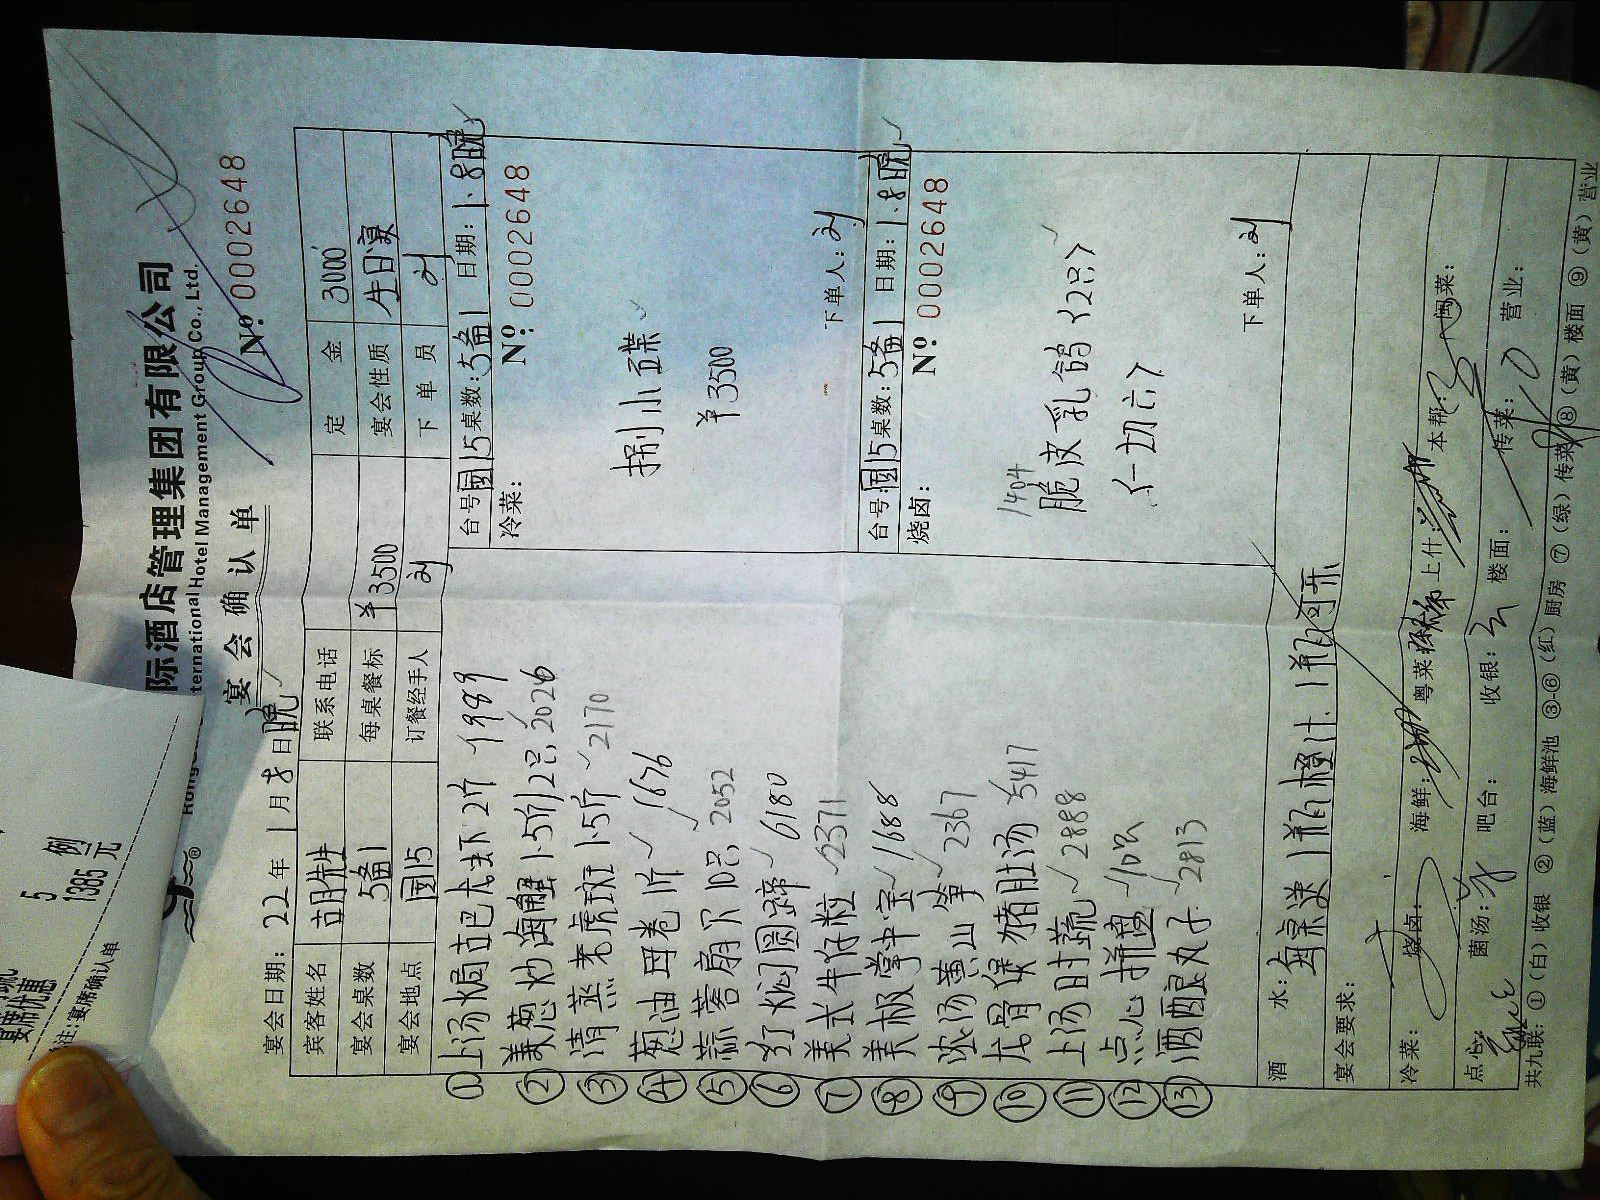 际酒店管理集团有限公司
ternational Hotel Management Group Co., Ltd.
宴会确认单
Nº: 0002648
宴会日期: 22年1月8日晚
宾客姓名 胡先生 联系电话 定金 3000
宴会桌数 5备1 每桌餐标 ¥3500 宴会性质 生日宴
宴会地点 国15 订餐经手人 刘 下单员 刘
①上汤焗芭巴龙虾2斤 1989
②姜葱炒海蟹1.5斤/2只 2026
③清蒸老虎斑1.5斤 2170
④葱油母卷1斤 1676
⑤蒜蓉扇贝10只 2052
⑥红焖圆蹄 6180
⑦美式牛仔粒 2371
⑧美极掌中宝 1688
⑨浓汤黄山笋 2367
⑩龙骨煲猪肚汤 5417
⑪上汤时蔬 2888
⑫点心拼盘 10只
⑬酒酿丸子 2813
台号: 国15 桌数: 5备1 日期: 1.8晚
冷菜: Nº: 0002648
捌小碟
¥3500
下单人: 刘
台号: 国15 桌数: 5备1 日期: 1.8晚
烧卤: Nº: 0002648
1404
脆皮乳鸽<2只>
<一切六>
下单人: 刘
酒水: 每桌送1瓶橙汁 1瓶可乐
宴会要求:
冷菜: 烧卤: 海鲜: 粤菜: 上什: 本帮: 闽菜:
点心: 菌汤: 吧台: 收银: 楼面: 传菜: 营业:
共九联: ①(白)收银 ②(蓝)海鲜池 ③-⑥(红)厨房 ⑦(绿)传菜 ⑧(黄)楼面 ⑨(黄)营业
5 例
1385 元
宴席优惠
注: 宴席确认单